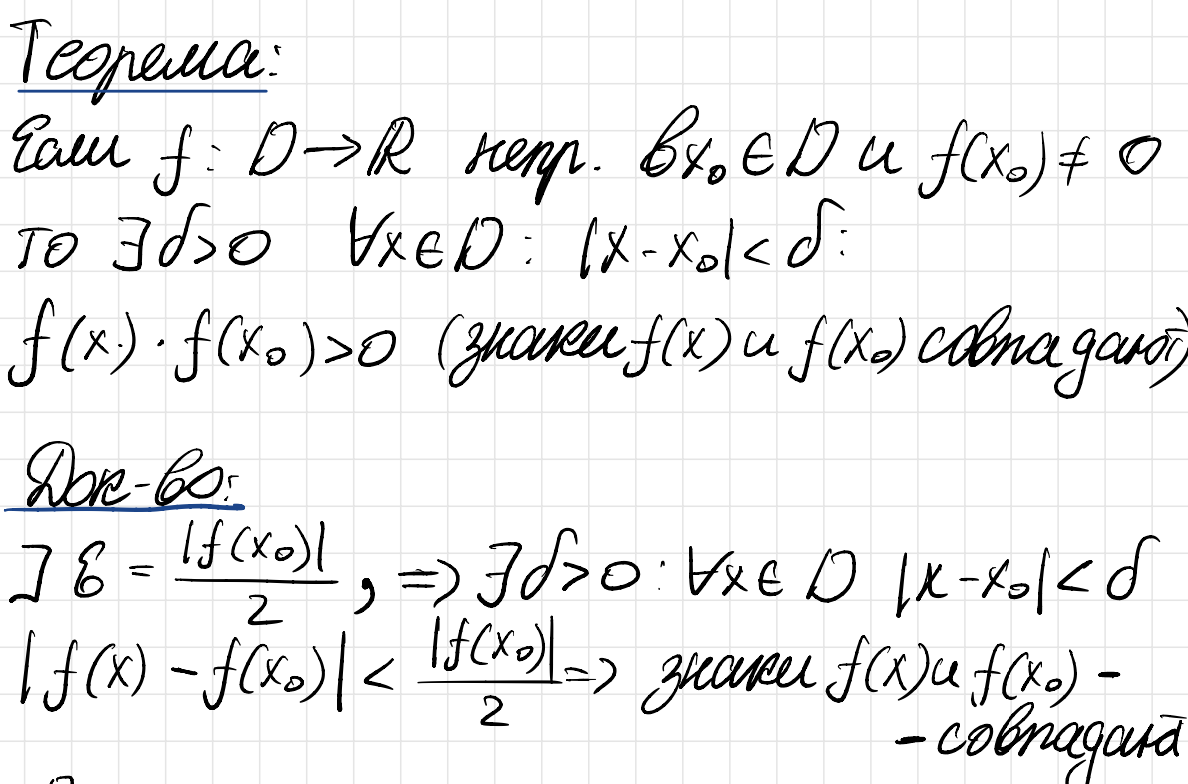 Теорема:
Если f: D→ℝ непр. в x₀ ∈ D и f(x₀) ≠ 0
то ∃δ>0 ∀x∈D: |x-x₀|<δ:
f(x)·f(x₀)>0 (знаки f(x) и f(x₀) совпадают)
Док-во:
] ε = |f(x₀)|/2, => ∃δ>0: ∀x∈D |x-x₀|<δ
|f(x) - f(x₀)| < |f(x₀)|/2 => знаки f(x) и f(x₀) -
- совпадают